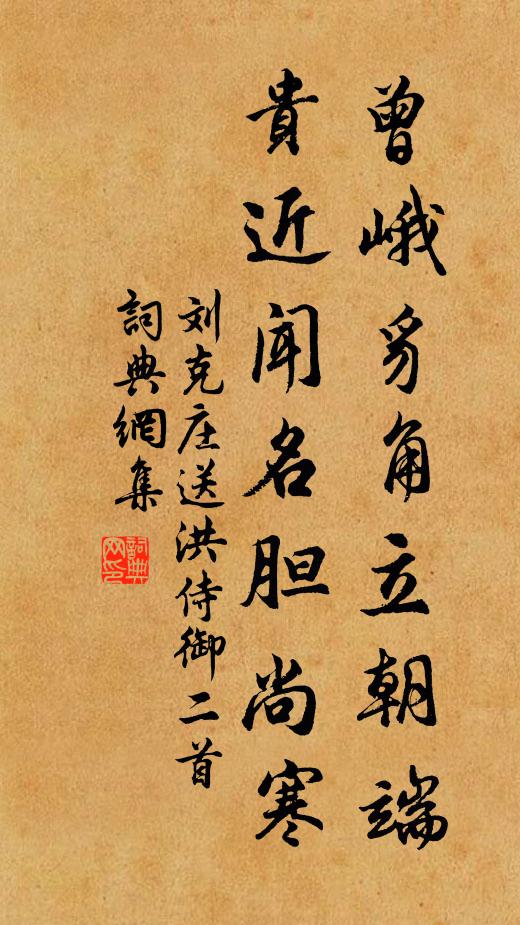 曾峨豸角立朝端
貴近闻名胆尚寒
刘克庄送洪侍御二首
詞典網集
詞典网印